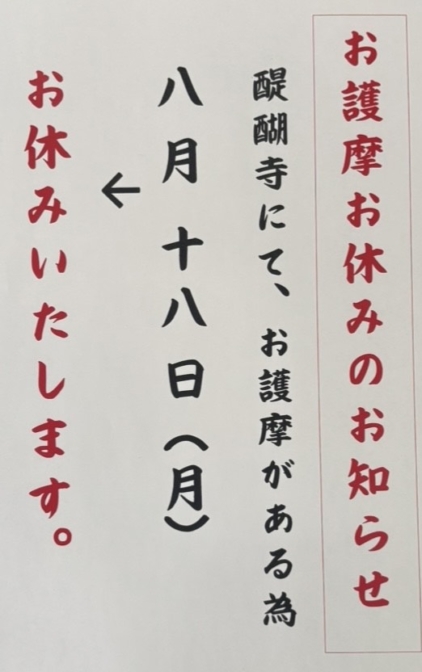 お護摩お休みのお知らせ
醍醐寺にて、お護摩がある為
八月十八日（月）
←
お休みいたします。